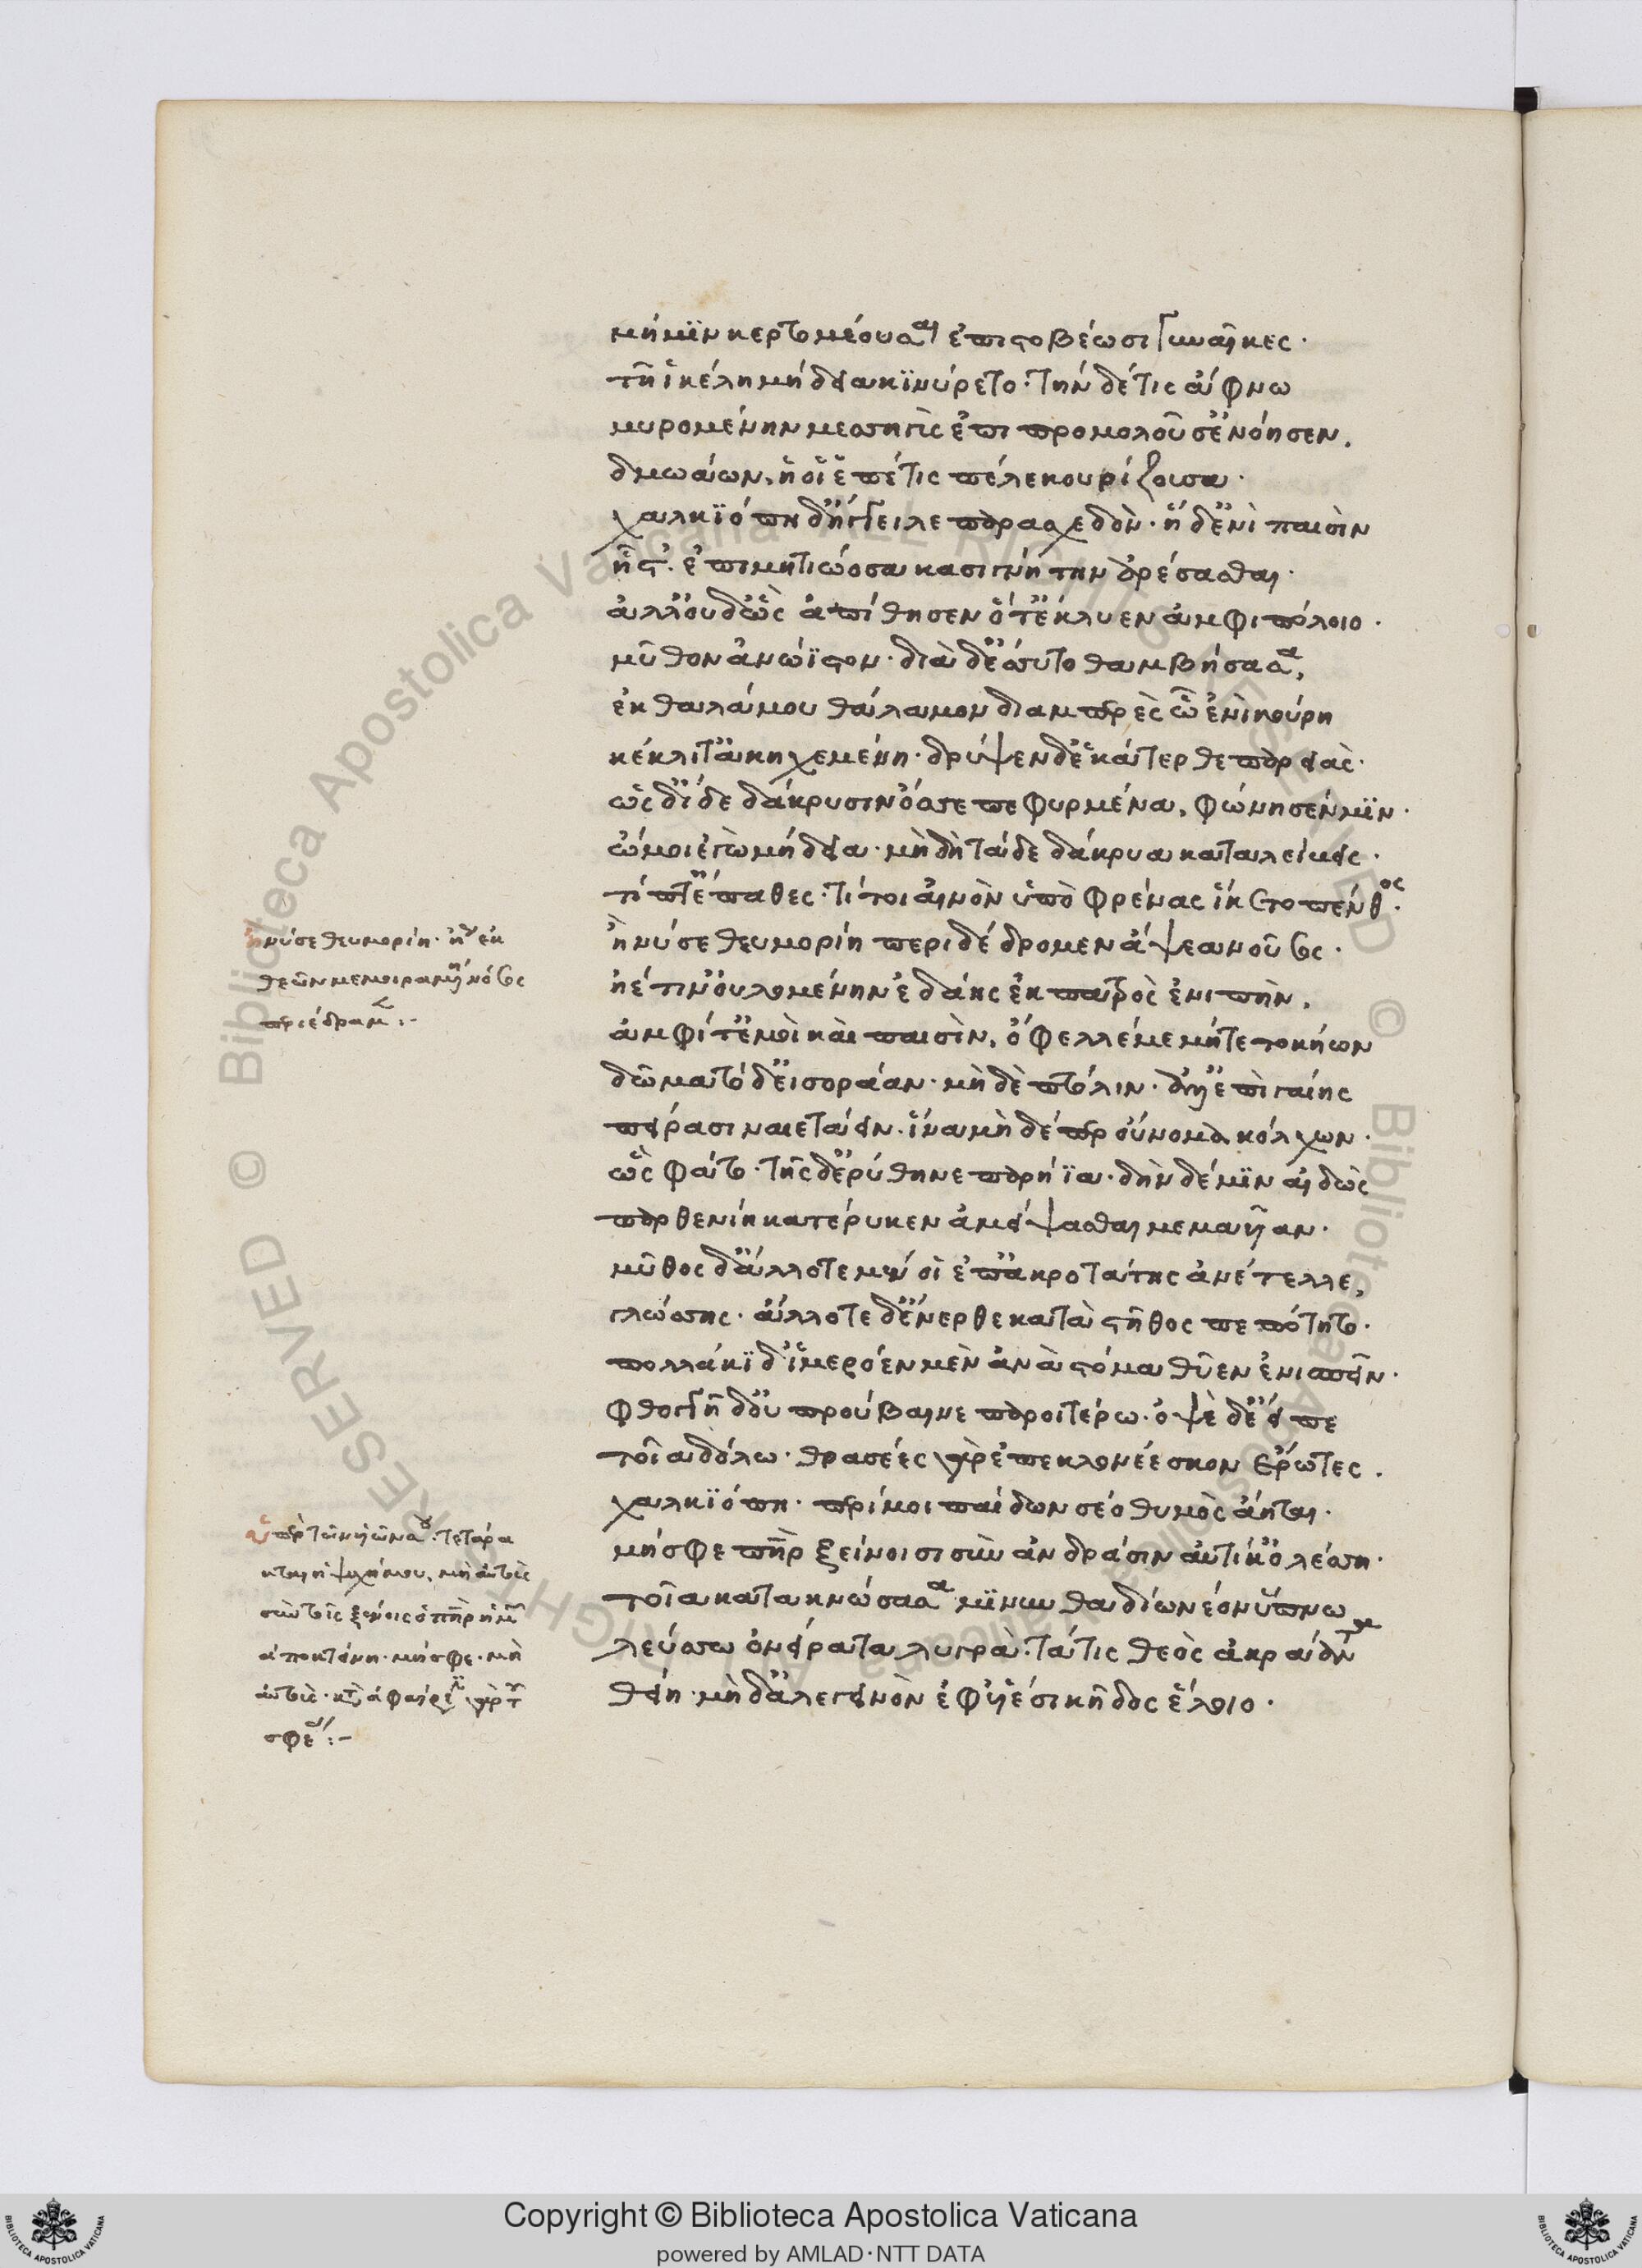 μή μϊν κερτομέουσαι ἐπιστοβέωσι γυναῖκες·
τῇ ἰκέλη μήδεια κϊνύρετο· τὴν δέ τις ἄφνω
μυρομένην μεσσηγὺς ἐπι προμολοῦσ' ἐνόησεν.
δμωάων, ἥ οἱ ἑπέτις πέλε κουρίζουσα·
χαλκϊόπη δ' ἤγγειλε παρασχεδόν· ἡ δ' ἐνὶ παισὶν
ἧστ' ἐπιμητιόωσα κασιγνήτην ἀρέσασθαι·
ἀλλ' οὐδ' ὧς ἀπίθησεν ὅτ' ἔκλυεν ἀμφιπόλοιο·
μῦθον ἀνώϊστον· διὰ δ' ἔσσυτο θαμβήσασα,
ἐκ θαλάμου θάλαμον διαμπερὲς ὧ ἐνὶ κούρη
κέκλιτ' ἀκηχεμένη· δρύψεν δ' ἑκάτερθε παρειάς·
ὡς δ' ἴδε δάκρυσιν ὄσσε πεφυρμένα, φώνησέν μϊν·
ὤμοι ἐγὼ μήδεια· μὴ δὴ τάδε δάκρυα καταλείψεις·
τί πτ' ἔπαθες· τί τοι αἰνὸν ὑπὸ φρένας ἵκετο πένθος·
ἤ νύ σε θευμορίη περιδέδρομεν ἅψεα νοῦσος·
ἠέ τιν' οὐλομένην ἐδάης ἐκ πατρὸς ἐνιπὴν,
ἀμφί τ' ἐμοὶ καὶ παισὶν, ὄφελλέ με μήτε τοκήων
δῶμα τόδ' εἰσοράαν· μὴ δὲ πτόλιν· ἀλλ' ἐπὶ γαίης
πείρασι ναιετάειν· ἵνα μὴ δέ περ οὔνομα κόλχων·
ὣς φάτο· τῆς δ' ἐρύθηνε παρήϊα· δὴν δέ μϊν αἰδὼς
παρθενίη κατέρυκεν ἀμείψασθαι μεμαυῖαν·
μῦθος δ' ἄλλοτε μέν οἱ ἐπ' ἀκροτάτης ἀνέτελλε,
γλώσσης· ἄλλοτε δ' ἔνερθε κατὰ στῆθος πεπότητο·
πολλάκϊ δ' ἱμερόεν μὲν ἀνὰ στόμα θῦεν ἐνισπεῖν·
φθογγῇ δ' οὐ προύβαινε παροιτέρω· ὀψὲ δ' ἔειπε
τοῖα δόλω· θρασέες γὰρ ἐπεκλονέεσκον ἔρωτες.
χαλκϊόπη· πέρι μοι παίδων σέο θυμὸς ἄηται·
μή σφε πατὴρ ξείνοισι σὺν ἀνδράσιν αὐτίκ' ὀλέσση·
τοῖα κατακνώσσασα μϊνυνθαδίω νέον ὕπνω
λεύσσω ὀνείρατα λυγρὰ· τά τις θεὸς ἀκράαντα
θείη· μὴ δ' ἀλεγεινὸν ἐφ' υἱέσι κῆδος ἕλοιο·
ἤ νύ σε θευμορίη· ἡ ἐκ
θεῶν μεμοιραμένη νόσος
περιέδραμεν:-
περὶ τῶν υἱῶν σου· τετάρα
κται ἡ ψυχή μου, μὴ αὐτοὺς
σὺν τοῖς ξένοις ὁ πατὴρ ἡμῶν
ἀποκτείνη· μή σφε· μὴ
αὐτούς·